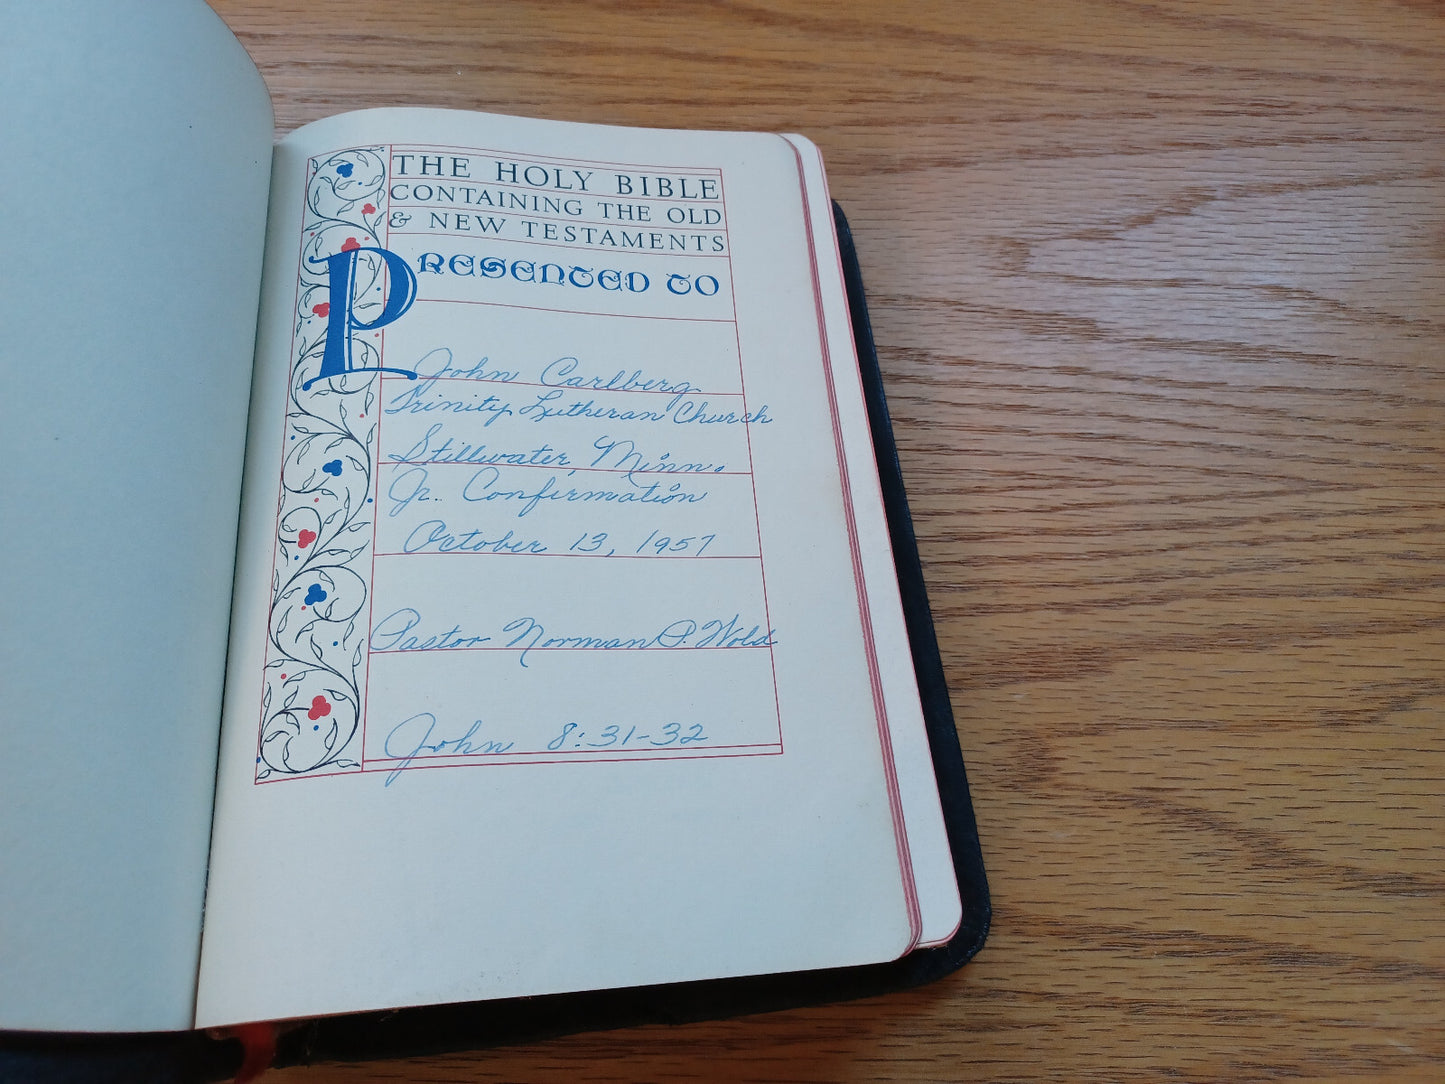 THE HOLY BIBLE
CONTAINING THE OLD
& NEW TESTAMENTS
PRESENTED TO
John Carlberg
Trinity Lutheran Church
Stillwater, Minn.
Jr. Confirmation
October 13, 1957
Pastor Norman P. Wold
John 8:31-32